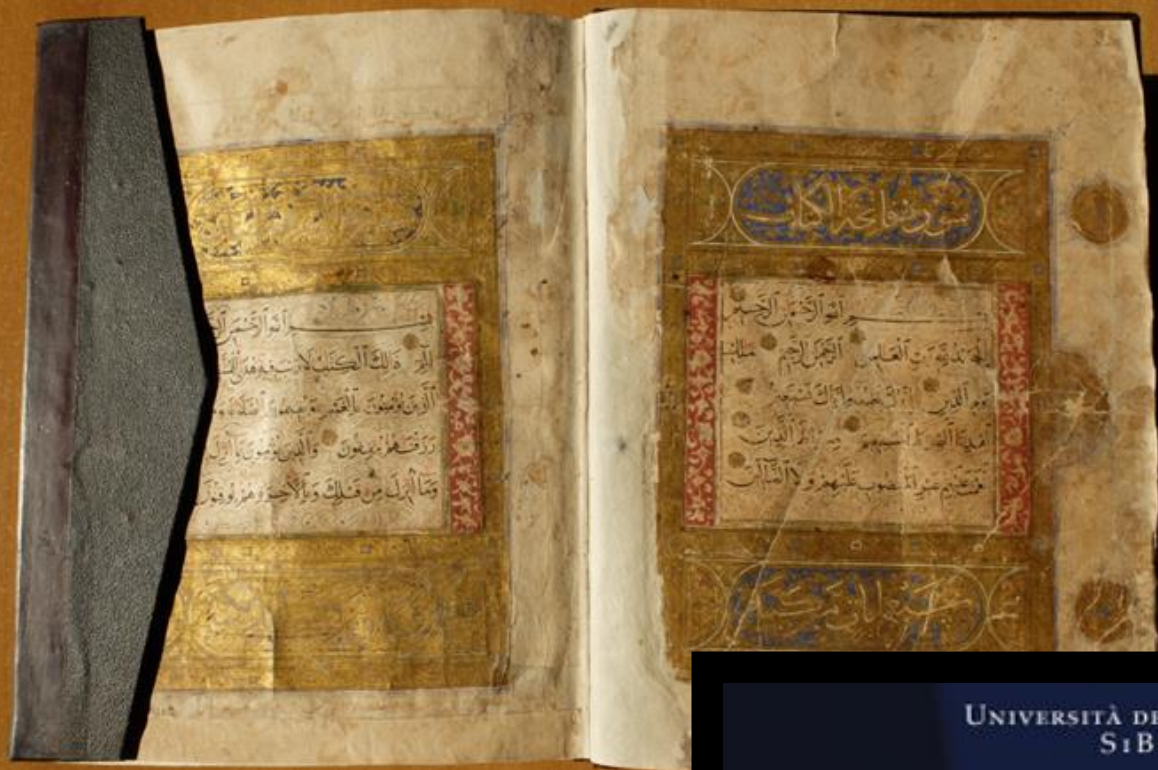 سورة فاتحة الكتاب
بسم الله الرحمن الرحيم
الحمد لله رب العلمين الرحمن الرحيم ملك
يوم الدين اياك نعبد واياك نستعين
اهدنا الصراط المستقيم صراط الذين
انعمت عليهم غير المغضوب عليهم ولا الضالين
بسم الله الرحمن
الم ذلك الكتب لا ريب فيه هدى
الذين يؤمنون بالغيب ويقيمون الصلوة
رزقنهم ينفقون والذين يؤمنون بما انزل
وما انزل من قبلك وبالاخرة هم يوقنون
UNIVERSITÀ DE
SIB